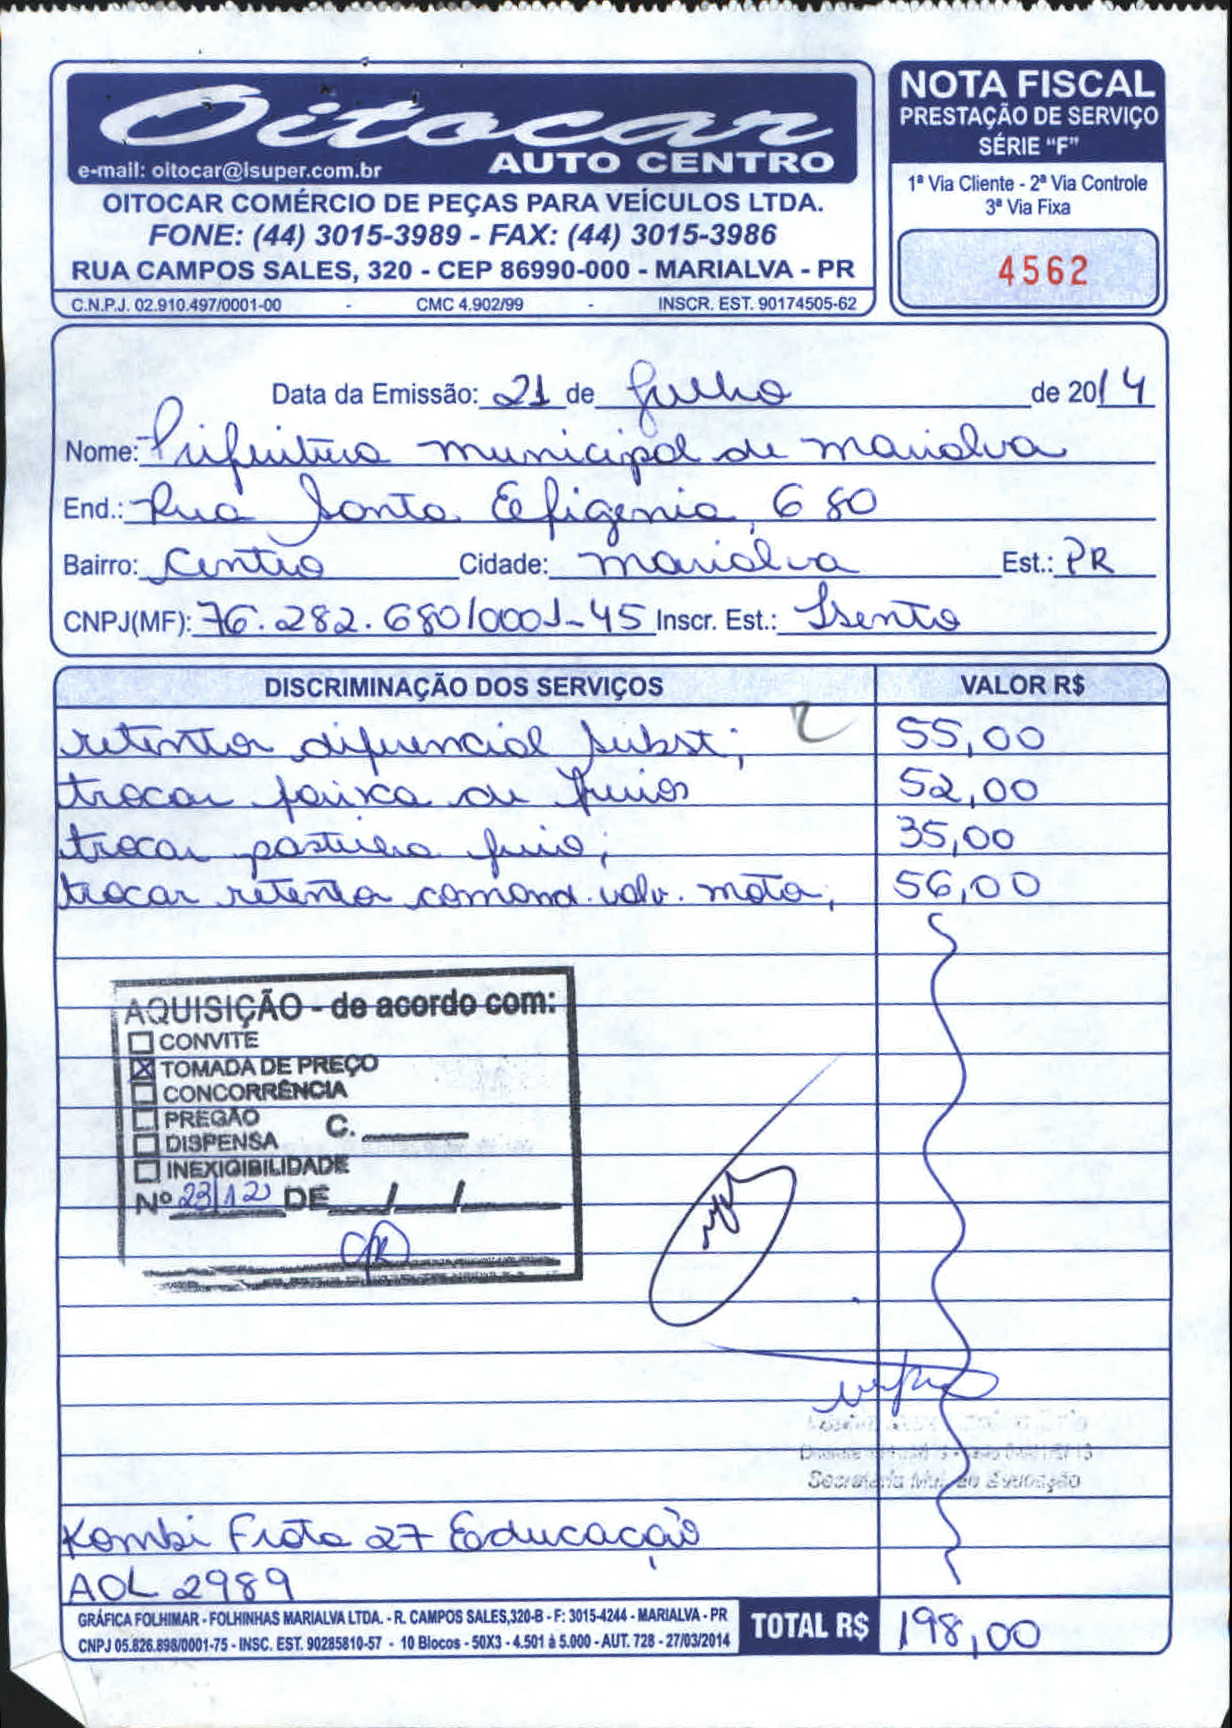 Oitocar
AUTO CENTRO
e-mail: oitocar@lsuper.com.br
OITOCAR COMÉRCIO DE PEÇAS PARA VEÍCULOS LTDA.
FONE: (44) 3015-3989 - FAX: (44) 3015-3986
RUA CAMPOS SALES, 320 - CEP 86990-000 - MARIALVA - PR
C.N.P.J. 02.910.497/0001-00 - CMC 4.902/99 - INSCR. EST. 90174505-62
NOTA FISCAL
PRESTAÇÃO DE SERVIÇO
SÉRIE “F”
1ª Via Cliente - 2ª Via Controle
3ª Via Fixa
4562
Data da Emissão: 21 de Julho de 2014
Nome: Prefeitura municipal de marialva
End.: Rua Santa Efigenia, 680
Bairro: Centro Cidade: marialva Est.: PR
CNPJ(MF): 76.282.680/0001-45 Inscr. Est.: Isento
DISCRIMINAÇÃO DOS SERVIÇOS VALOR R$
retentor diferencial subst; 55,00
trocar faixca de freios 52,00
trocar pastilha freio; 35,00
trocar retentor comand. valv. motor; 56,00
AQUISIÇÃO - de acordo com:
CONVITE
TOMADA DE PREÇO
CONCORRÊNCIA
PREGÃO C.
DISPENSA
INEXIGIBILIDADE
Nº 23/12 DE / /
Secretaria Mul. de Educação
Kombi Frota 27 Educação
AOL 2989
GRÁFICA FOLHIMAR - FOLHINHAS MARIALVA LTDA. - R. CAMPOS SALES,320-B - F: 3015-4244 - MARIALVA - PR
CNPJ 05.826.898/0001-75 - INSC. EST. 90285810-57 - 10 Blocos - 50X3 - 4.501 à 5.000 - AUT. 728 - 27/03/2014
TOTAL R$ 198,00